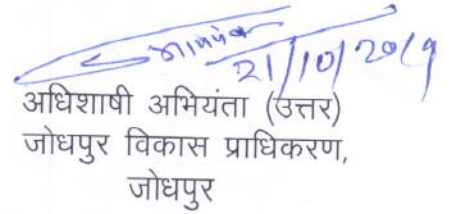 21/10/2019
अधिशाषी अभियंता (उत्तर)
जोधपुर विकास प्राधिकरण,
जोधपुर